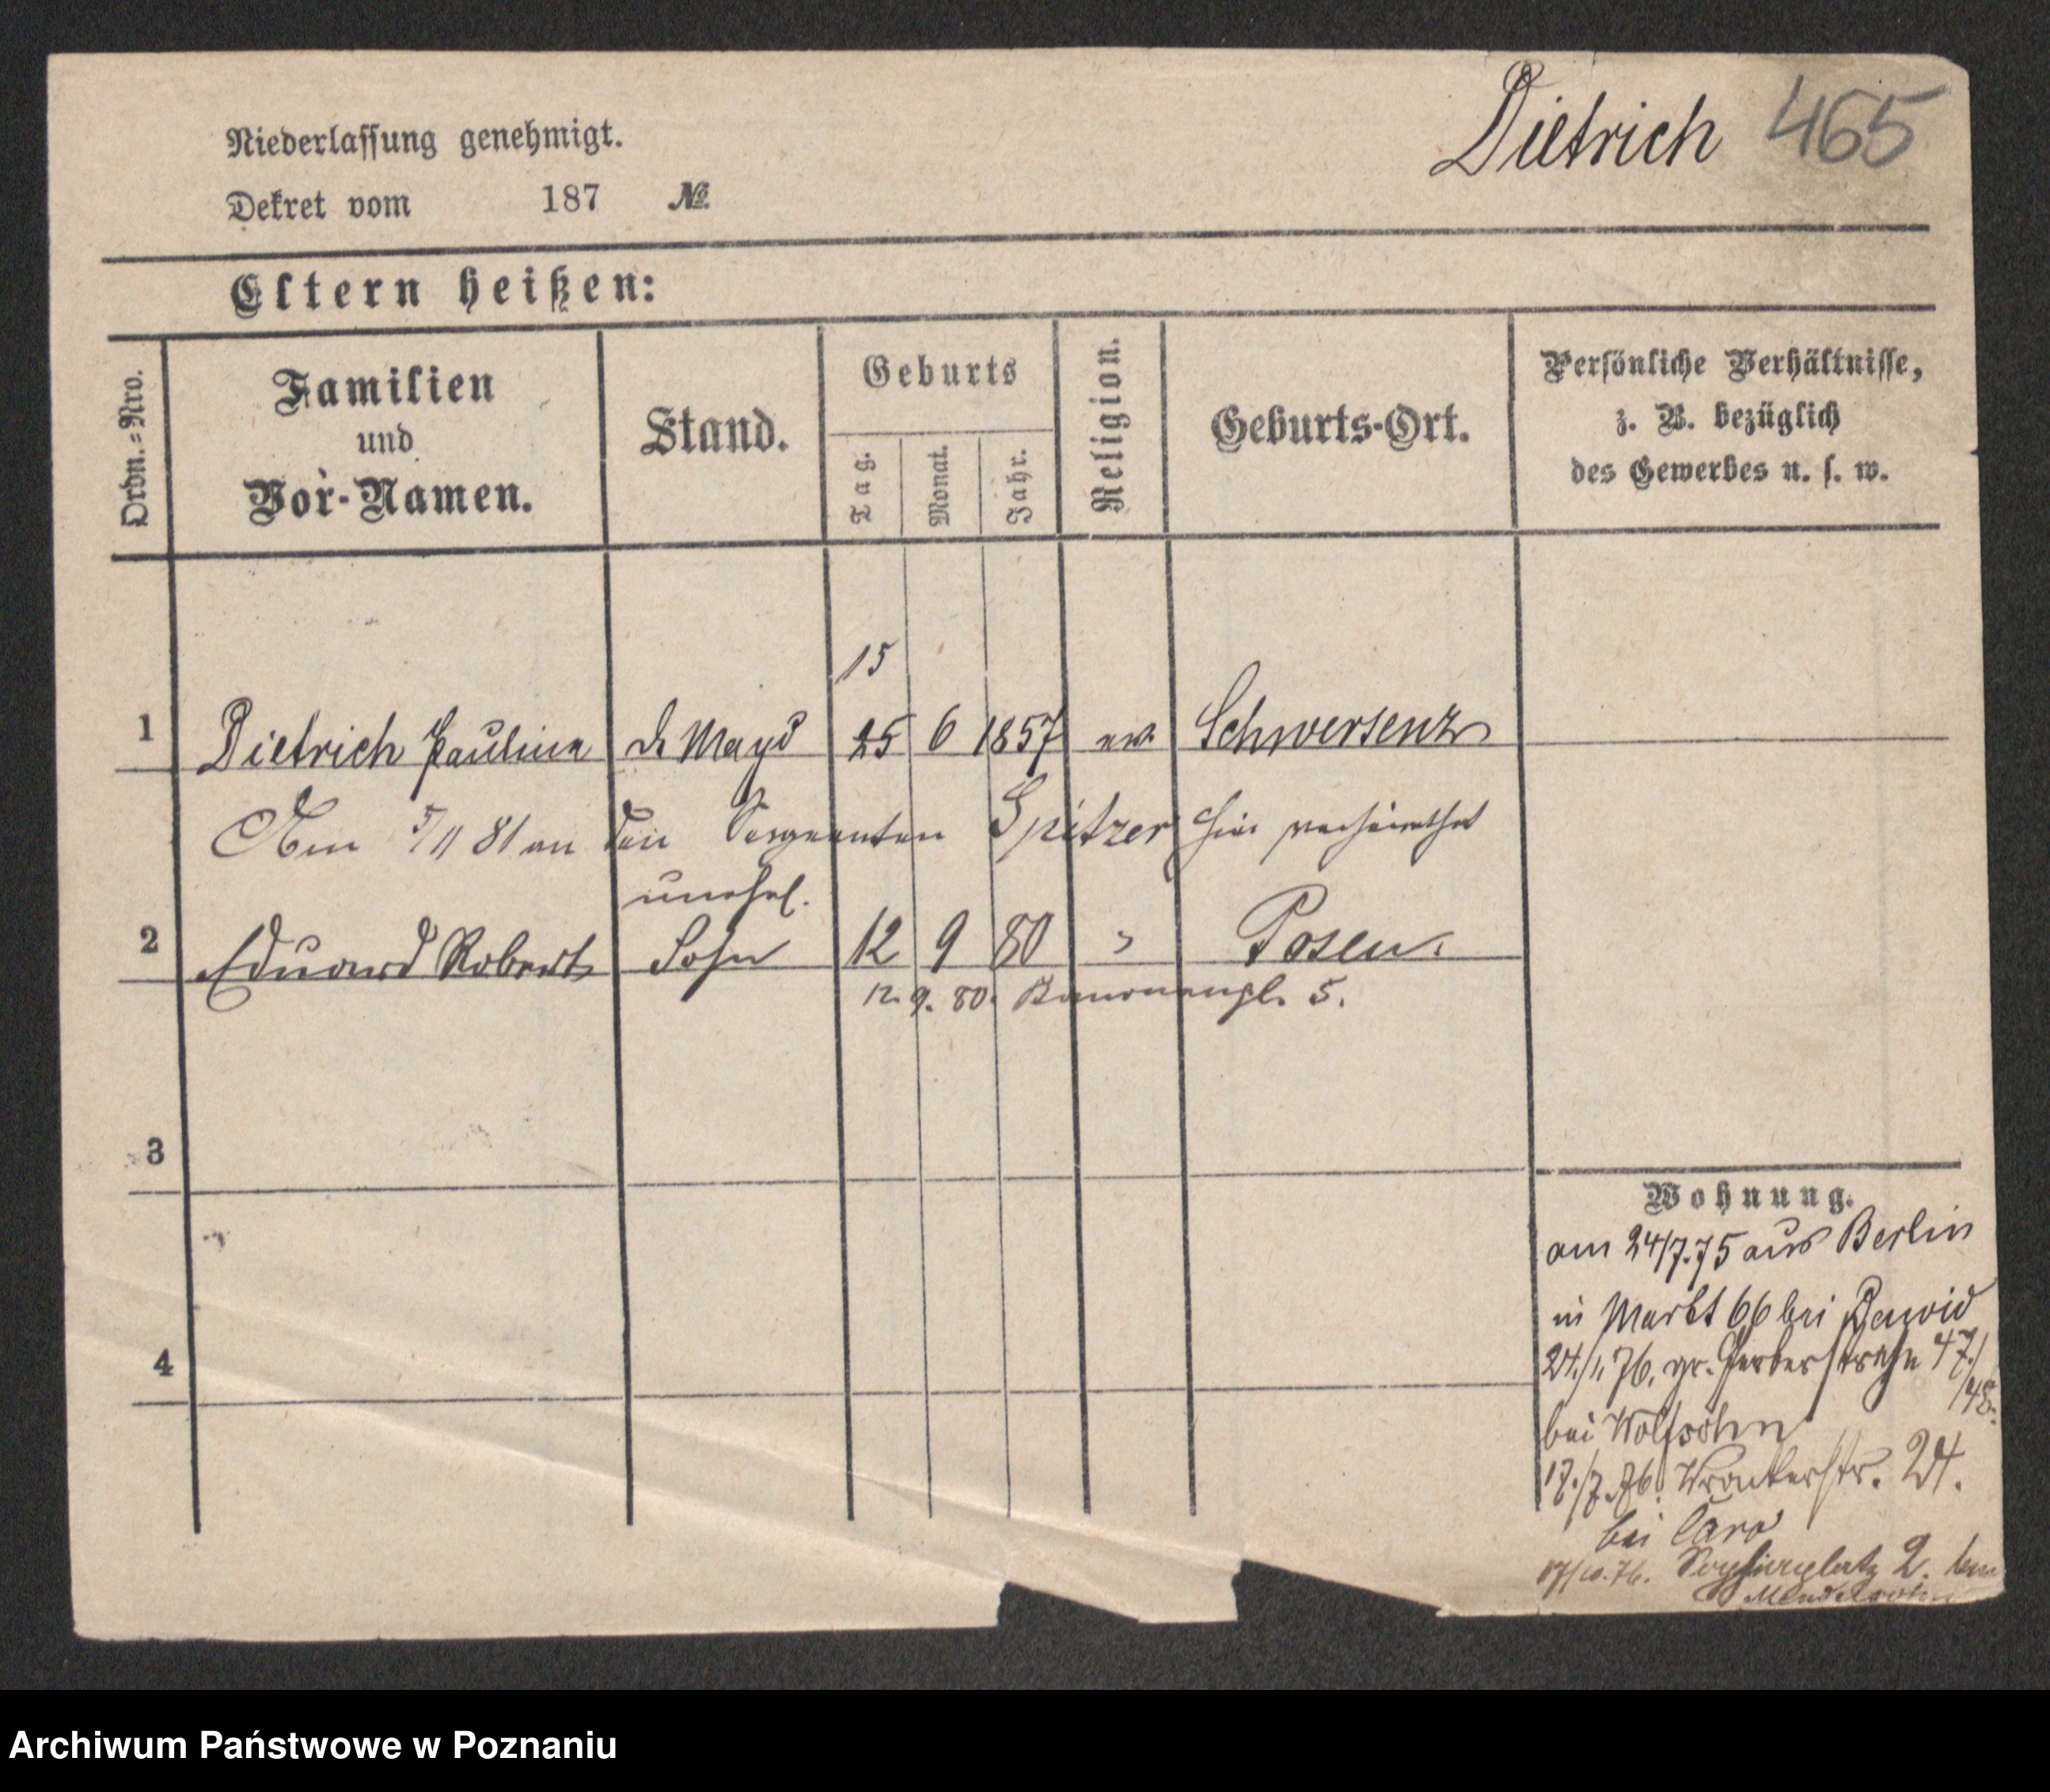 Dietrich 465
Niederlassung genehmigt.
Dekret vom 187 №
Eltern heißen:
Ordn.=Nro.
Familien
und
Vor-Namen.
Stand.
Geburts
Tag.
Monat.
Jahr.
Religion.
Geburts-Ort.
Persönliche Verhältnisse,
z. B. bezüglich
des Gewerbes u. s. w.
15
1 Dietrich Pauline d. Magd 25 6 1857 ev. Schwersenz
Am 5/11 81 an den Sergeanten Spitzer hier verheirathet
unehel.
2 Eduard Robert Sohn 12 9 80 " Posen.
12. 9. 80. 5.
3
4
Wohnung.
am 24/7.75 aus Berlin
in Markt 66 bei Dawid
24./1. 76. gr. Gerberstraße 47./
/48.
bei Wolfsohn
17./7. 76. Wronkerstr. 24.
bei Caro
17/10.76. Sapiehaplatz 2. bei
Mendelsohn
Archiwum Państwowe w Poznaniu